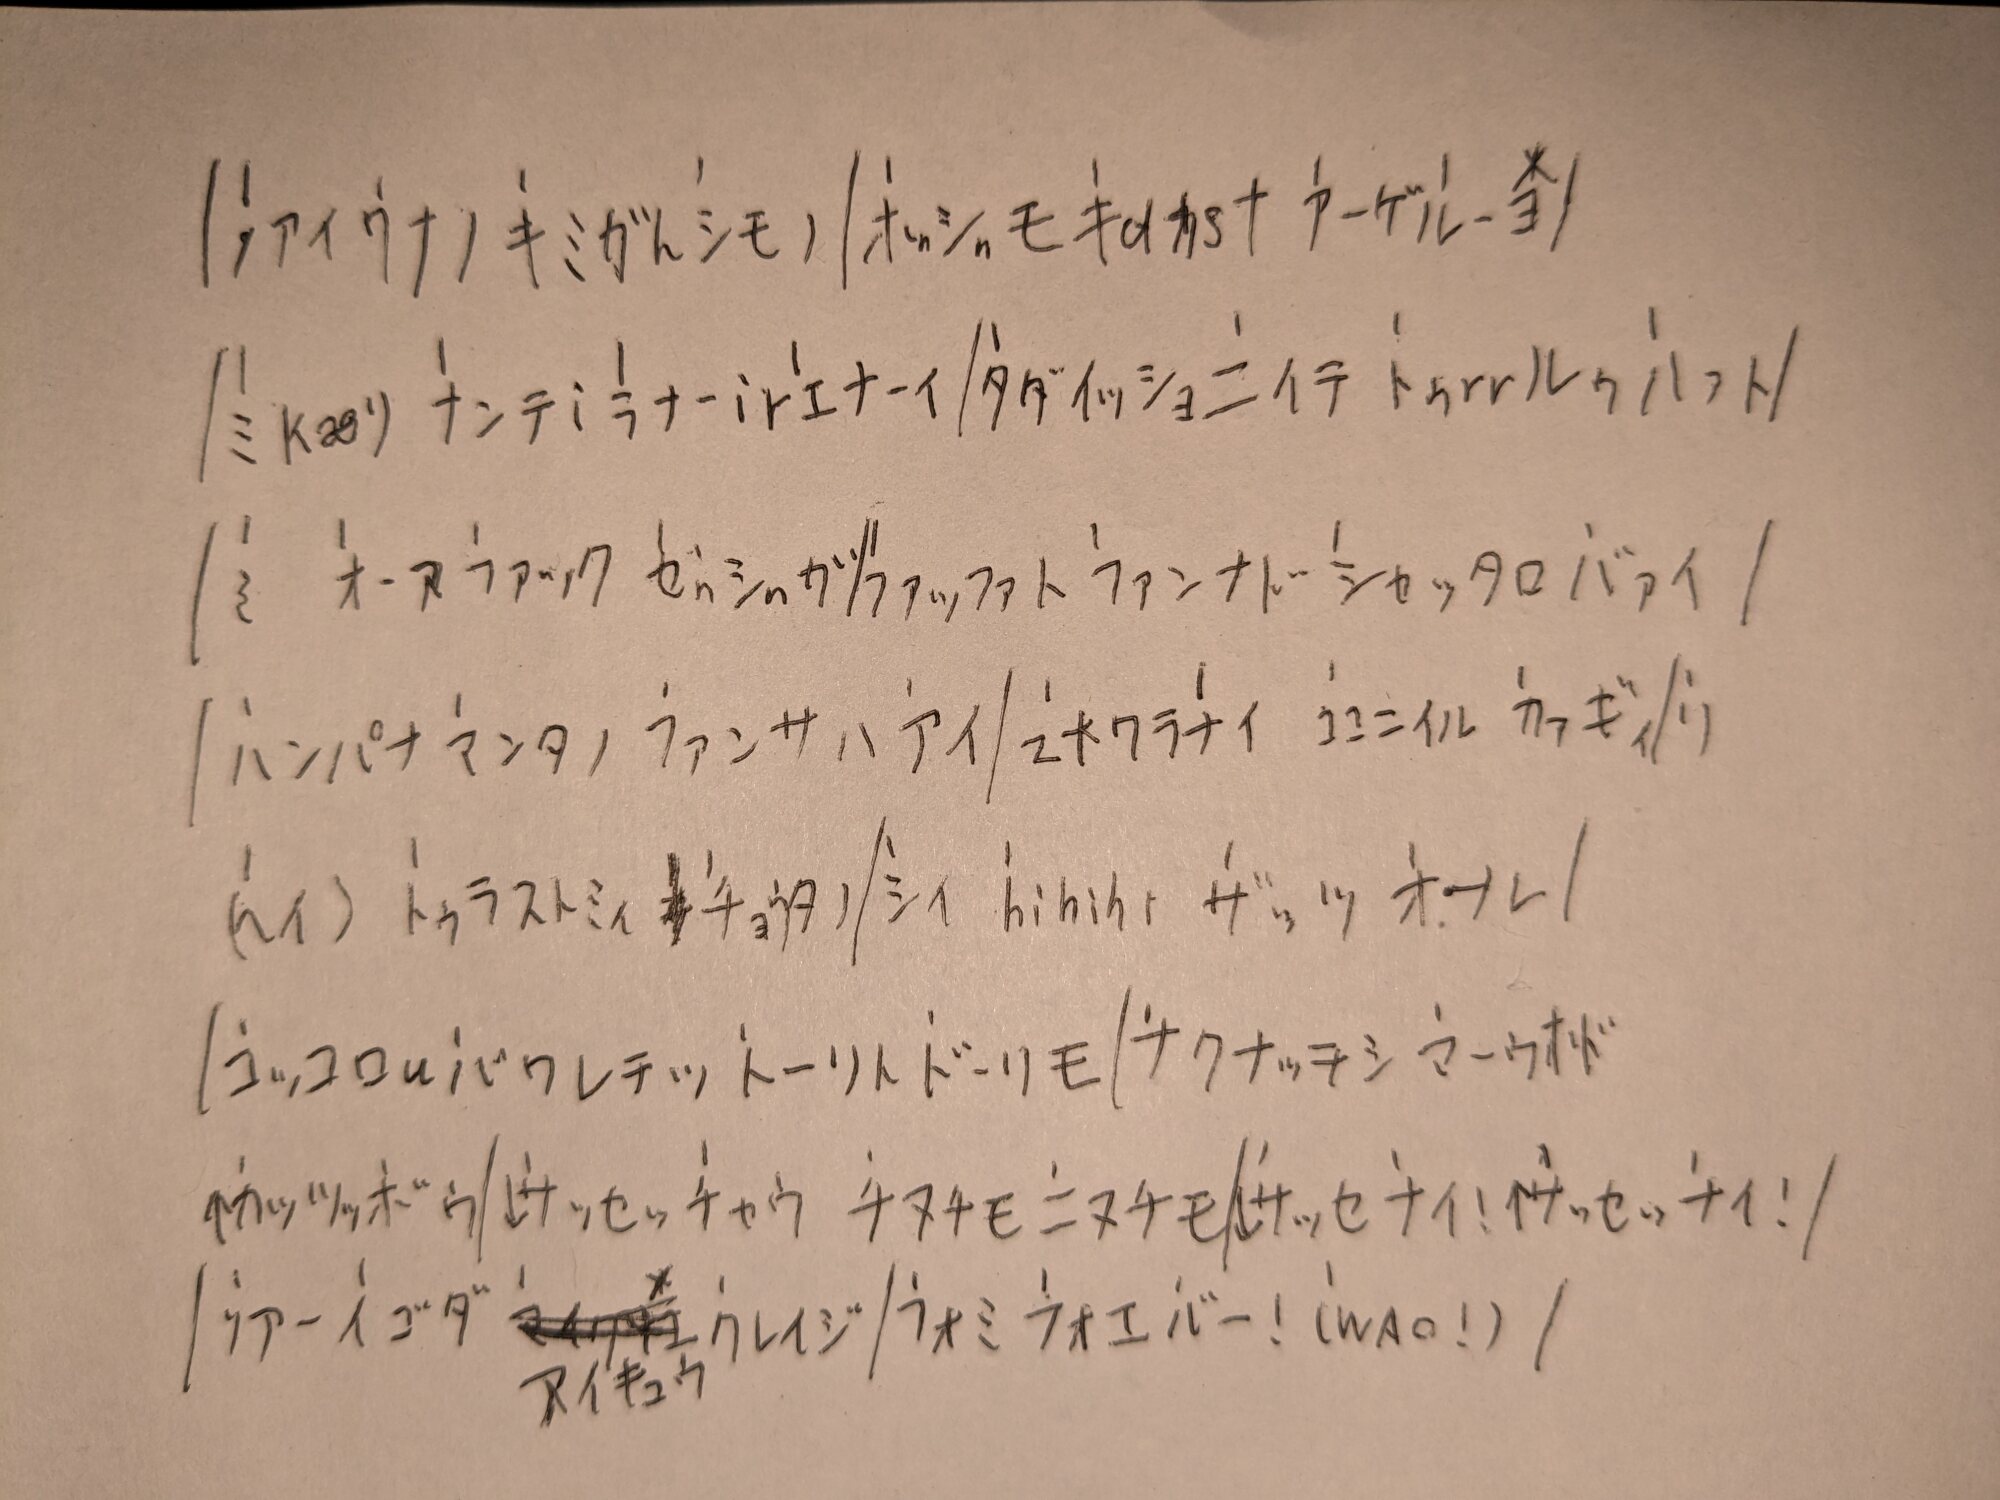 /ァアイウナノ キミガhシモノ/オnシnモ キdカsナ アーゲルーヨ/
/ミ Kaeリ ナンテiラナーirエナーイ/タダイッショニイテ トゥrrルゥハァト/
/ミ オースファック ゼnシnガ/ファッファト ファンナドーシャッタロバァイ/
/ハンパナマンタノ ファンサハアイ/エホワラナイ ココニイル カァギィ/リ
(ヘイ) トゥラストミィ チョウタノ/シィ hihihi ザッツ オール/
/コッコロuバワレテッ トーリトドーリモ/ナクナッチシ マーウホド
↑カッツッボゥ/↓サッセッチャウ チヌチモニヌチモ/↓サッセナイ!↑サッセッナイ!/
/リアーイゴダ アイキュウ クレイジ/フォミフォエバー!(WAO!)/